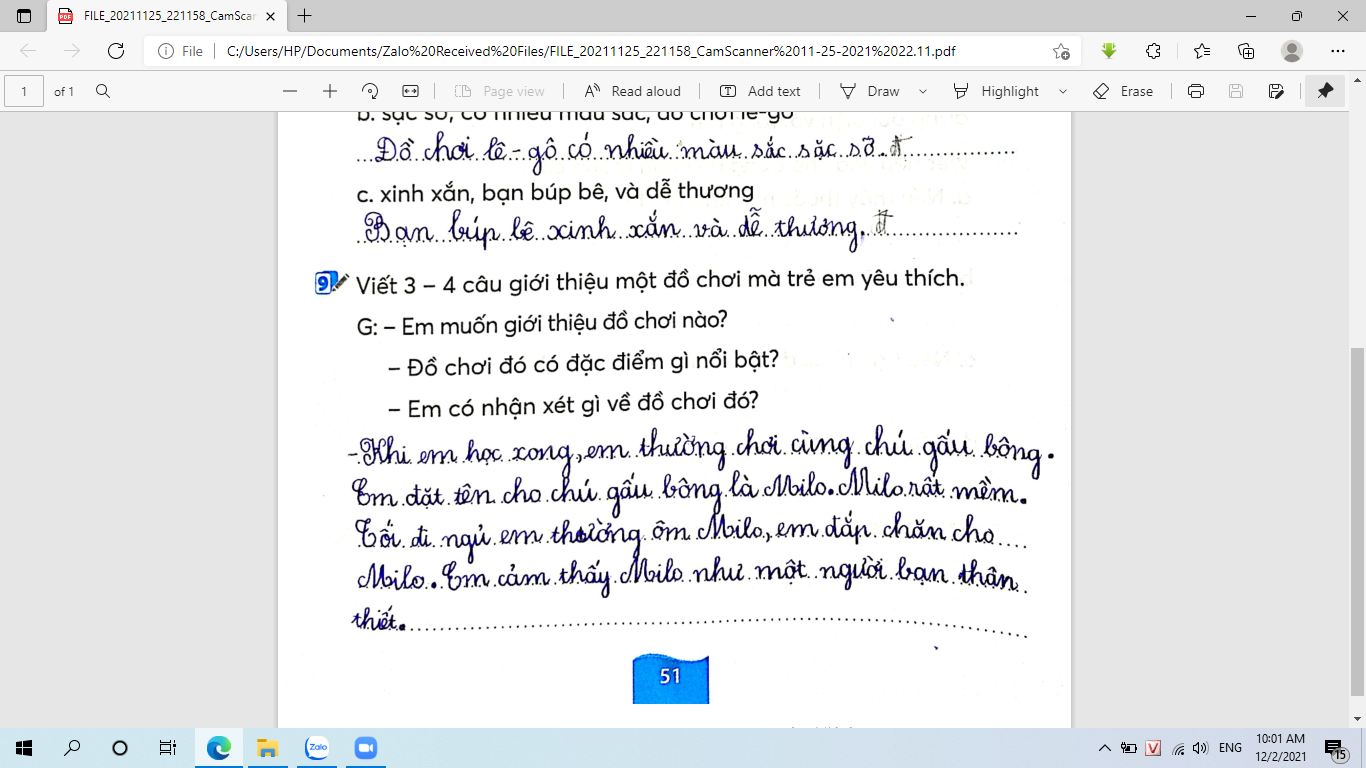 FILE_20211125_221158_CamScan
File
C:/Users/HP/Documents/Zalo%20Received%20Files/FILE_20211125_221158_CamScanner%2011-25-2021%2022.11.pdf
1 of 1 Page view Read aloud Add text Draw Highlight Erase
b. sặc sỡ, có nhiều màu sắc, đồ chơi lê-gô
Đồ chơi lê-gô có nhiều màu sắc sặc sỡ. đ
c. xinh xắn, bạn búp bê, và dễ thương
Bạn búp bê xinh xắn và dễ thương. đ
9 Viết 3 – 4 câu giới thiệu một đồ chơi mà trẻ em yêu thích.
G: – Em muốn giới thiệu đồ chơi nào?
– Đồ chơi đó có đặc điểm gì nổi bật?
– Em có nhận xét gì về đồ chơi đó?
- Khi em học xong, em thường chơi cùng chú gấu bông.
Em đặt tên cho chú gấu bông là Milo. Milo rất mềm.
Tối đi ngủ em thường ôm Milo, em đắp chăn cho
Milo. Em cảm thấy Milo như một người bạn thân
thiết.
51
Zalo
V
ENG
10:01 AM
12/2/2021
15